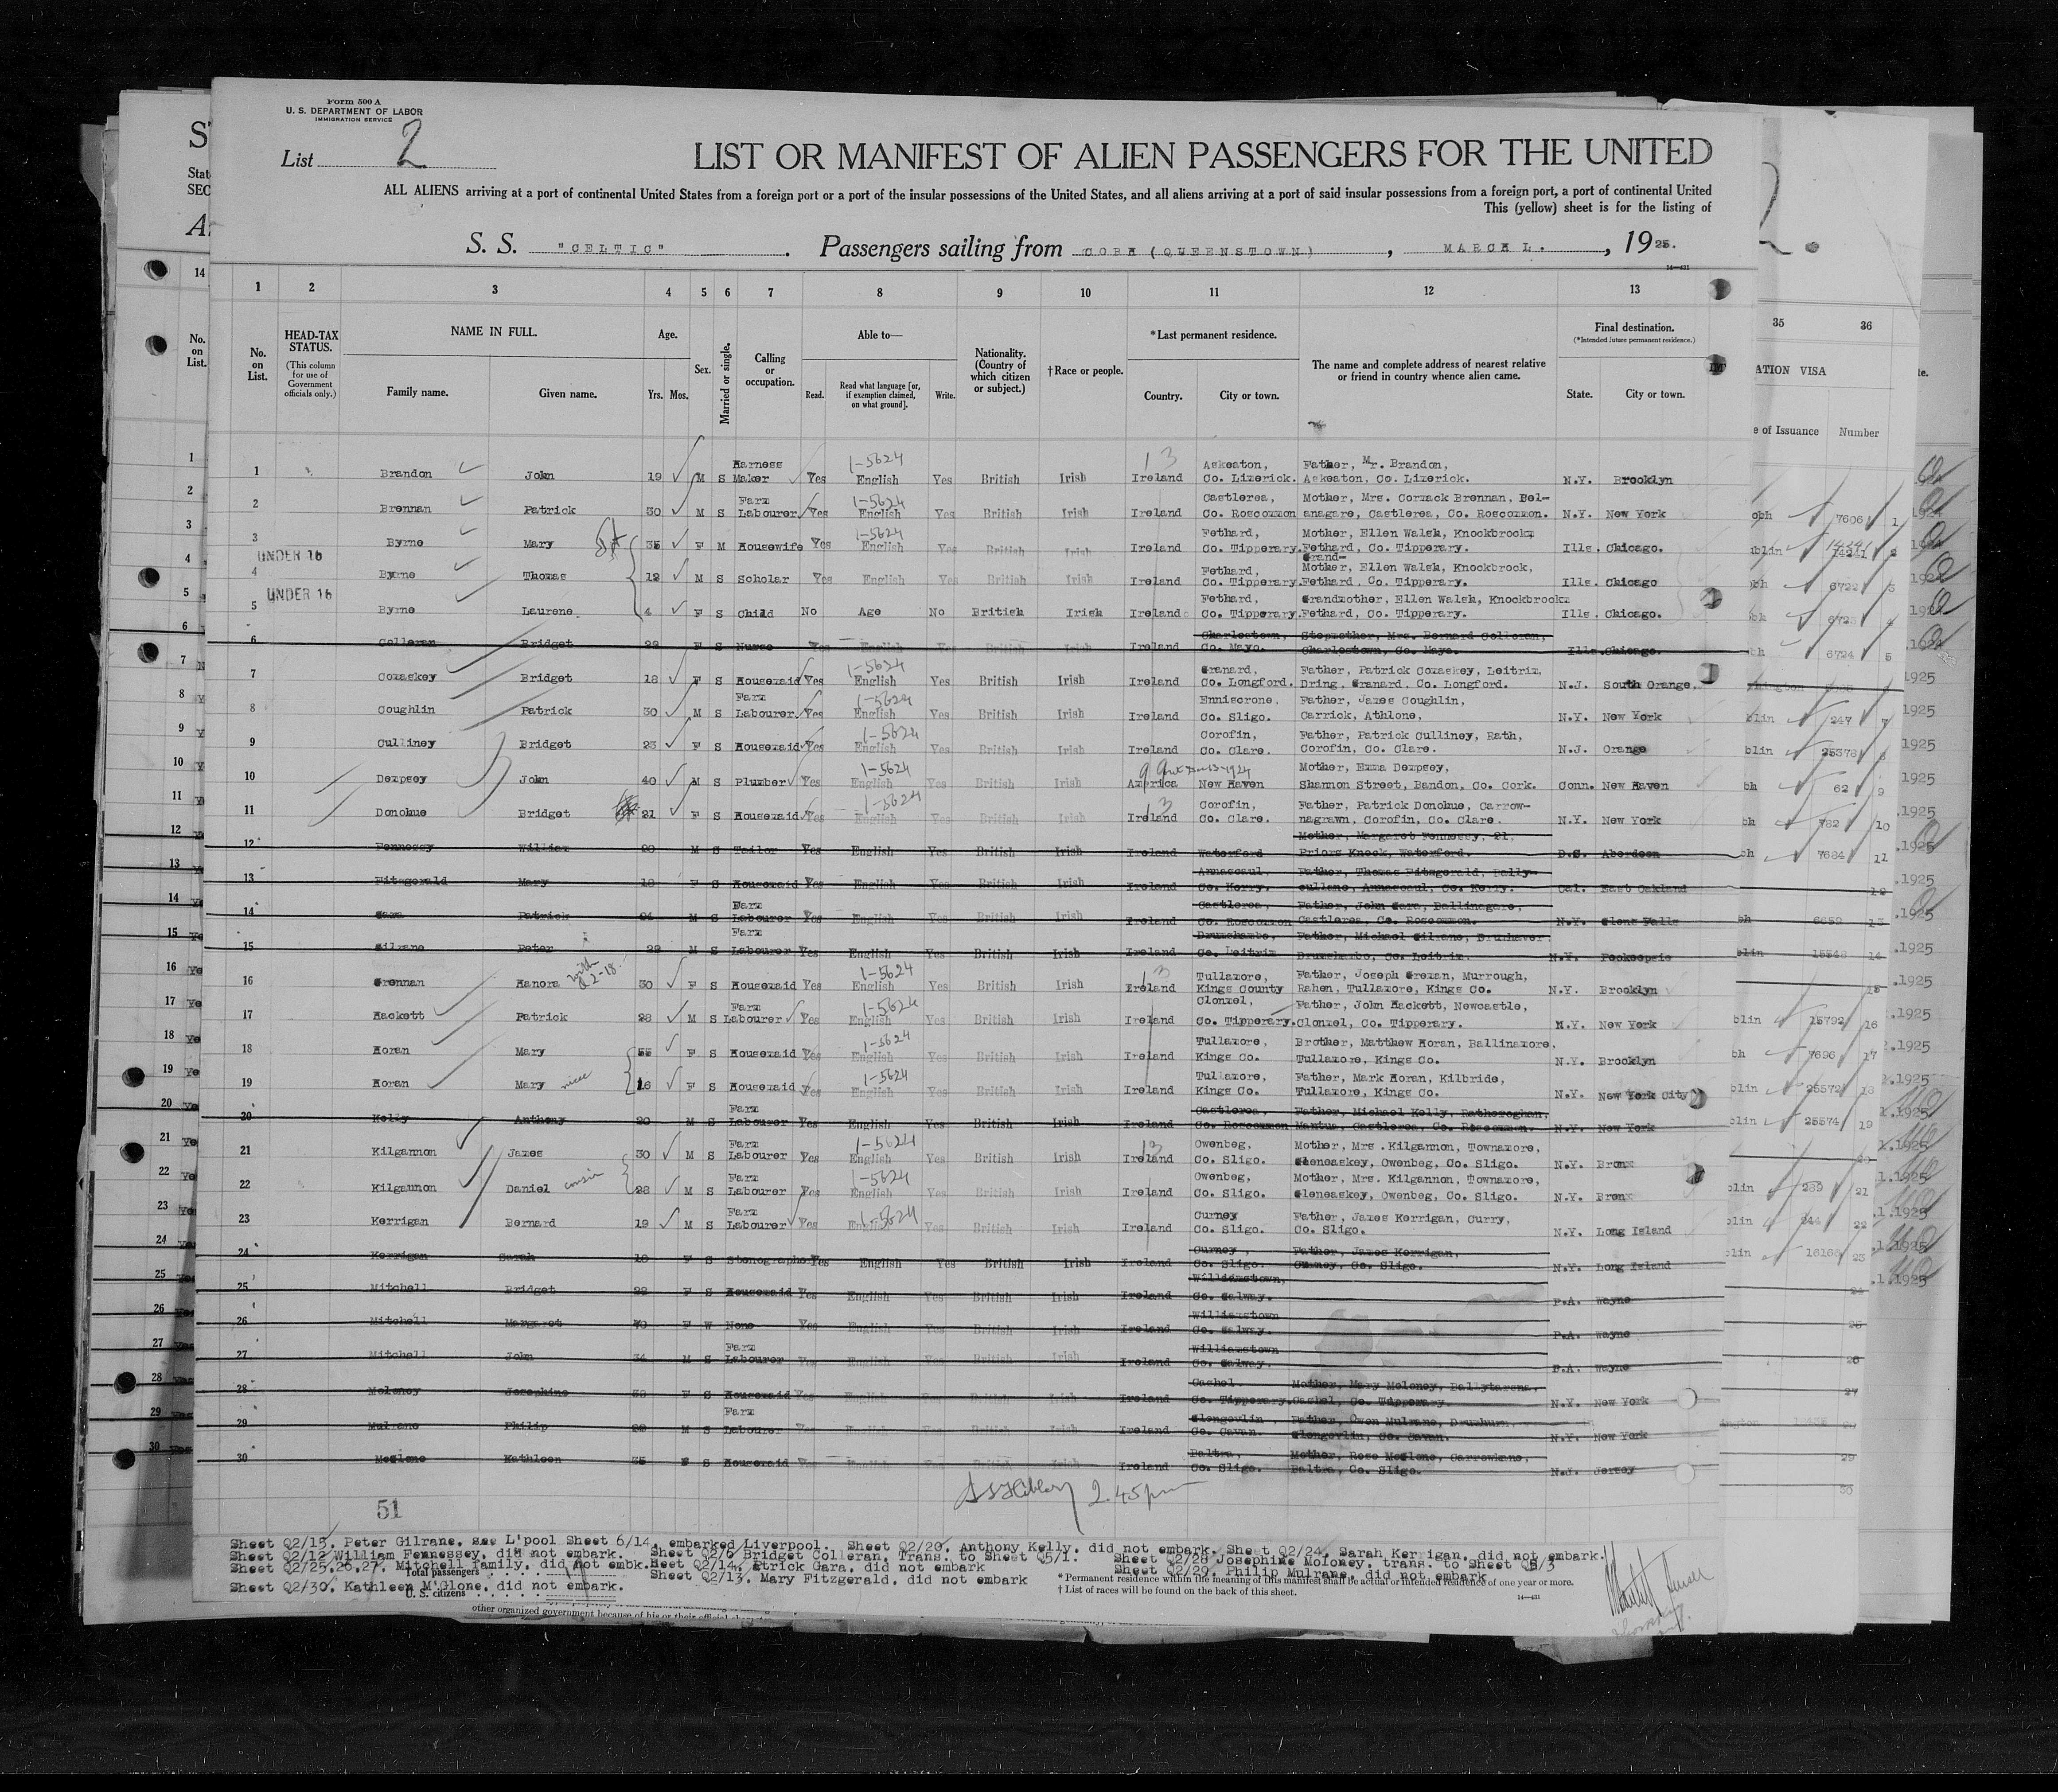 Form 500 A
U. S. DEPARTMENT OF LABOR
IMMIGRATION SERVICE
List 2
LIST OR MANIFEST OF ALIEN PASSENGERS FOR THE UNITED
ALL ALIENS arriving at a port of continental United States from a foreign port or a port of the insular possessions of the United States, and all aliens arriving at a port of said insular possessions from a foreign port, a port of continental United
This (yellow) sheet is for the listing of
S. S. "CELTIC". Passengers sailing from COBH (QUEENSTOWN), MARCH 1., 1925.
14—431
1 2 3 4 5 6 7 8 9 10 11 12 13
No. on List. HEAD-TAX STATUS. (This column for use of Government officials only.) NAME IN FULL. Family name. Given name. Age. Yrs. Mos. Sex. Married or single. Calling or occupation. Able to— Read. Read what language [or, if exemption claimed, on what ground]. Write. Nationality. (Country of which citizen or subject.) †Race or people. *Last permanent residence. Country. City or town. The name and complete address of nearest relative or friend in country whence alien came. Final destination. (*Intended future permanent residence.) State. City or town.
35 36
ATION VISA
e of Issuance Number
1 Brandon John 19 M S Harness Maker Yes 1-5624 English Yes British Irish 13 Ireland Askeaton, Co. Limerick. Father, Mr. Brandon, Askeaton, Co. Limerick. N.Y. Brooklyn
2 Brennan Patrick 30 M S Farm Labourer Yes 1-5624 English Yes British Irish Ireland Castlerea, Co. Roscommon Mother, Mrs. Cormack Brennan, Bel-anagare, Castlerea, Co. Roscommon. N.Y. New York
3 Byrne Mary 35 F M Housewife Yes 1-5624 English Yes British Irish Ireland Fethard, Co. Tipperary. Mother, Ellen Walsh, Knockbrock, Fethard, Co. Tipperary. Ills. Chicago.
UNDER 16
4 Byrne Thomas 12 M S Scholar Yes English Yes British Irish Ireland Fethard, Co. Tipperary. Grand-Mother, Ellen Walsh, Knockbrock, Fethard, Co. Tipperary. Ills. Chicago
UNDER 16
5 Byrne Laurene 4 F S Child No Age No British Irish Ireland Fethard, Co. Tipperary. Grandmother, Ellen Walsh, Knockbrock, Fethard, Co. Tipperary. Ills. Chicago.
6 Colleran Bridget 22 F S Nurse Yes English Yes British Irish Ireland Charlestown, Co. Mayo. Stepmother, Mrs. Bernard Colleran, Charlestown, Co. Mayo. Ills. Chicago.
7 Comaskey Bridget 18 F S Housemaid Yes 1-5624 English Yes British Irish Ireland Granard, Co. Longford. Father, Patrick Comaskey, Leitrim, Dring, Granard, Co. Longford. N.J. South Orange.
8 Coughlin Patrick 30 M S Farm Labourer. Yes 1-5624 English Yes British Irish Ireland Enniscrone, Co. Sligo. Father, James Coughlin, Carrick, Athlone, N.Y. New York
9 Culliney Bridget 23 F S Housemaid Yes 1-5624 English Yes British Irish Ireland Corofin, Co. Clare. Father, Patrick Culliney, Rath, Corofin, Co. Clare. N.J. Orange
10 Dempsey John 40 M S Plumber Yes 1-5624 English Yes British Irish America New Haven Mother, Emma Dempsey, Shannon Street, Bandon, Co. Cork. Conn. New Haven
11 Donohue Bridget 21 F S Housemaid Yes 1-5624 English Yes British Irish 13 Ireland Corofin, Co. Clare. Father, Patrick Donohue, Carrow-nagrawn, Corofin, Co. Clare. N.Y. New York
12 Fennessy William 20 M S Tailor Yes English Yes British Irish Ireland Waterford Mother, Margaret Fennessy, 21, Priors Knock, Waterford. D.S. Aberdeen
13 Fitzgerald Mary 18 F S Housemaid Yes English Yes British Irish Ireland Annascaul, Co. Kerry. Father, Thomas Fitzgerald, Bally-cullane, Annascaul, Co. Kerry. Cal. East Oakland
14 Gara Patrick 21 M S Farm Labourer Yes English Yes British Irish Ireland Castlerea, Co. Roscommon Father, John Gara, Ballinagare, Castlerea, Co. Roscommon. N.Y. Glens Falls
15 Gilrane Peter 22 M S Farm Labourer Yes English Yes British Irish Ireland Drumshambo, Co. Leitrim Father, Michael Gilrane, Drumhaver, Drumshambo, Co. Leitrim. N.Y. Pookeepsie
16 Grennan Hanora with Q2-18 30 F S Housemaid Yes 1-5624 English Yes British Irish 13 Ireland Tullamore, Kings County Father, Joseph Greman, Murrough, Rahen, Tullamore, Kings Co. N.Y. Brooklyn
17 Hackett Patrick 28 M S Farm Labourer Yes 1-5624 English Yes British Irish Ireland Clonmel, Co. Tipperary. Father, John Hackett, Newcastle, Clonmel, Co. Tipperary. N.Y. New York
18 Horan Mary 55 F S Housemaid Yes 1-5624 English Yes British Irish Ireland Tullamore, Kings Co. Brother, Matthew Horan, Ballinamore, Tullamore, Kings Co. N.Y. Brooklyn
19 Horan Mary niece 16 F S Housemaid Yes 1-5624 English Yes British Irish Ireland Tullamore, Kings Co. Father, Mark Horan, Kilbride, Tullamore, Kings Co. N.Y. New York City
20 Kelly Anthony 20 M S Farm Labourer Yes English Yes British Irish Ireland Castlerea, Co. Roscommon Father, Michael Kelly, Rathcroghan, Mantua, Castlerea, Co. Roscommon. N.Y. New York
21 Kilgannon James 30 M S Farm Labourer Yes 1-5624 English Yes British Irish 13 Ireland Owenbeg, Co. Sligo. Mother, Mrs. Kilgannon, Townamore, Gleneaskey, Owenbeg, Co. Sligo. N.Y. Bronx
22 Kilgannon Daniel cousin 28 M S Farm Labourer Yes 1-5624 English Yes British Irish Ireland Owenbeg, Co. Sligo. Mother, Mrs. Kilgannon, Townamore, Gleneaskey, Owenbeg, Co. Sligo. N.Y. Bronx
23 Kerrigan Bernard 19 M S Farm Labourer Yes 1-5624 English Yes British Irish Ireland Curney Co. Sligo. Father, James Kerrigan, Curry, Co. Sligo. N.Y. Long Island
24 Kerrigan Sarah 18 F S Stenographe Yes English Yes British Irish Ireland Curney, Co. Sligo. Father, James Kerrigan, Curney, Co. Sligo. N.Y. Long Island
25 Mitchell Bridget 22 F S Housemaid Yes English Yes British Irish Ireland Williamstown, Co. Galway. P.A. Wayne
26 Mitchell Margaret 70 F W None Yes English Yes British Irish Ireland Williamstown Co. Galway. P.A. Wayne
27 Mitchell John 34 M S Farm Labourer Yes English Yes British Irish Ireland Williamstown Co. Galway. P.A. Wayne
28 Moloney Josephine F S Housemaid Yes English Yes British Irish Ireland Cashel. Co. Tipperary. Mother, Mary Moloney, Ballytarsna, Cashel, Co. Tipperary. N.Y. New York
29 Mulrane Philip M S Farm Labourer Yes English Yes British Irish Ireland Glengevlin, Co. Cavan. Father, Owen Mulrane, Drumhurn, Glengevlin, Co. Cavan. N.Y. New York
30 McGlone Kathleen 35 F S Housemaid Yes English Yes British Irish Ireland Baltra, Co. Sligo. Mother, Rose McGlone, Carrowkane, Baltra, Co. Sligo. N.J. Jersey
2.45 pm
51
Sheet Q2/15, Peter Gilrane, see L'pool Sheet 6/14, embarked Liverpool. Sheet Q2/20, Anthony Kelly, did not embark. Sheet Q2/24, Sarah Kerrigan, did not embark.
Sheet Q2/12 William Fennessey, did not embark. Sheet Q2/6 Bridget Colleran, Trans. to Sheet Q5/1. Sheet Q2/28 Josephine Moloney, trans. to Sheet Q5/3
Sheet Q2/25,26,27, Mitchell family, did not embk. Sheet Q2/14, Patrick Gara, did not embark Sheet Q2/29, Philip Mulrane, did not embark
Total passengers
Sheet Q2/13, Mary Fitzgerald, did not embark
Sheet Q2/30, Kathleen M'Glone, did not embark.
U. S. citizens
* Permanent residence within the meaning of this manifest shall be actual or intended residence of one year or more.
† List of races will be found on the back of this sheet.
14—431
other organized government because of his or their official